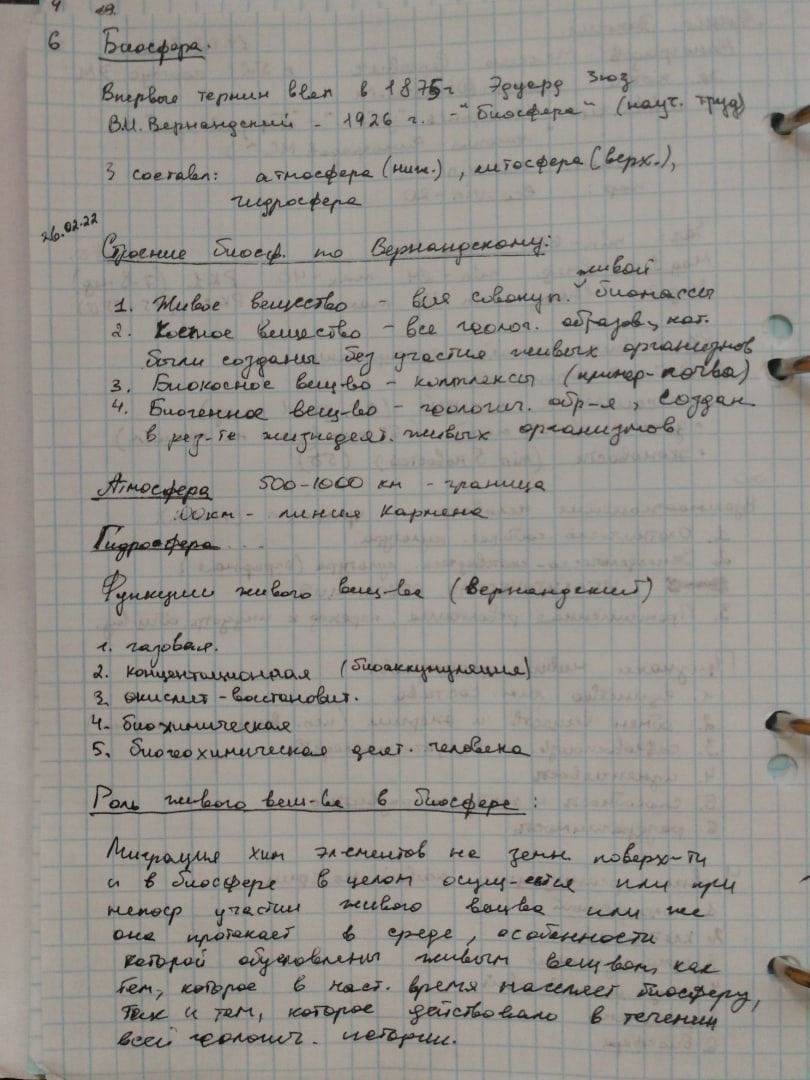 6 Биосфера.
Впервые термин ввел в 1875г Эдуард Зюз
В.И. Вернандский - 1926 г. - "биосфера" (науч. труд)
3 составл: атмосфера (ниж.), литосфера (верх.),
гидросфера
26.02.22
Строение биосф. по Вернандскому:
1. Живое вещество - вся совокуп. живой биомассы
2. Косное вещество - все геолог. образов, кот.
были созданы без участия живых организмов
3. Биокосное вещ-во - комплексы (пример - почва)
4. Биогенное вещ-во - геологич. обр-я, создан
в рез-те жизнедеят. живых организмов
Атмосфера 500-1000 км - граница
100км - линия Кармена
Гидросфера...
Функции живого вещ-ва (Вернандский)
1. газовая.
2. концентационная (биоаккумуляция)
3. окислит - восстановит.
4. биохимическая
5. биогеохимическая деят. человека
Роль живого вещ-ва в биосфере:
Миграция хим элементов на земн. поверх-ти
и в биосфере в целом осущ-ется или при
непоср участии живого вещва или же
она протекает в среде, особенности
которой обусловлены живым вещвом, как
тем, которое в наст. время населяет биосферу,
так и тем, которое действовало в течении
всей геологич. истории.